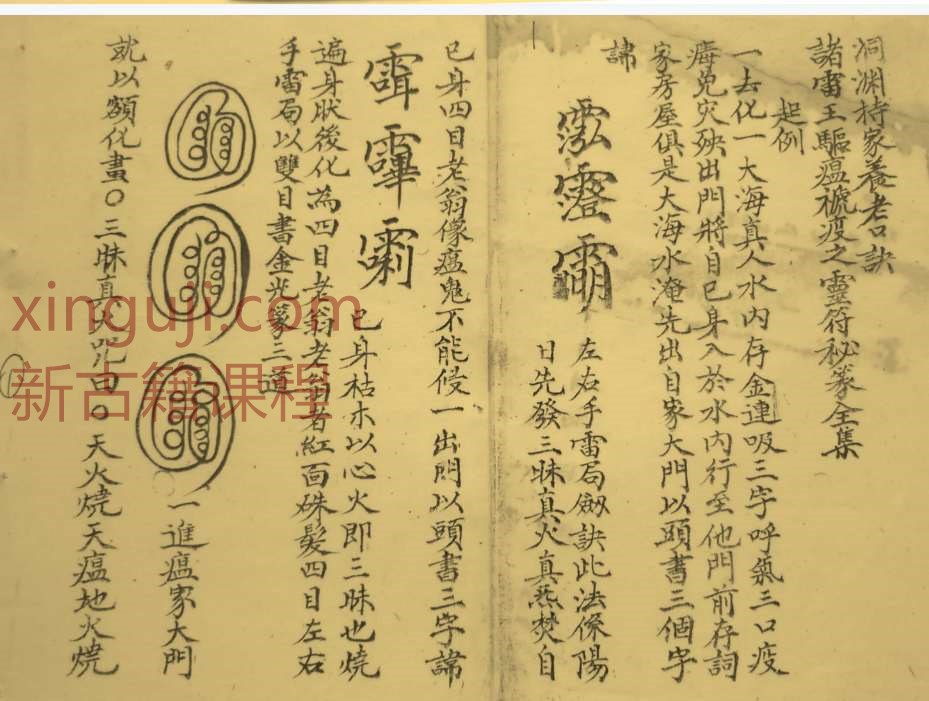 洞渊持家養老口訣
諸雷王驅瘟祛疫之靈符秘篆全集
起例
一去化一大海真人水内存金連吸三字呼氣三口疫
痗免灾殃出門將自已身入於水内行至他門前存詞
家房屋俱是大海水淹先出自家大門以頭書三個字
諱
左右手雷局劔訣此法係陽
日先發三昧真火真炁焚自
已身四目老翁像瘟鬼不能侵一出門以頭書三字諱
已身枯木以心火即三昧也燒
遍身狀後化為四目老翁老翁者紅面硃髮四目左右
手雷局以雙目書金光篆三道
一進瘟家大門
就以額化畫〇三昧真火咒曰〇天火燒天瘟地火燒
xinguji.com
新古籍课程